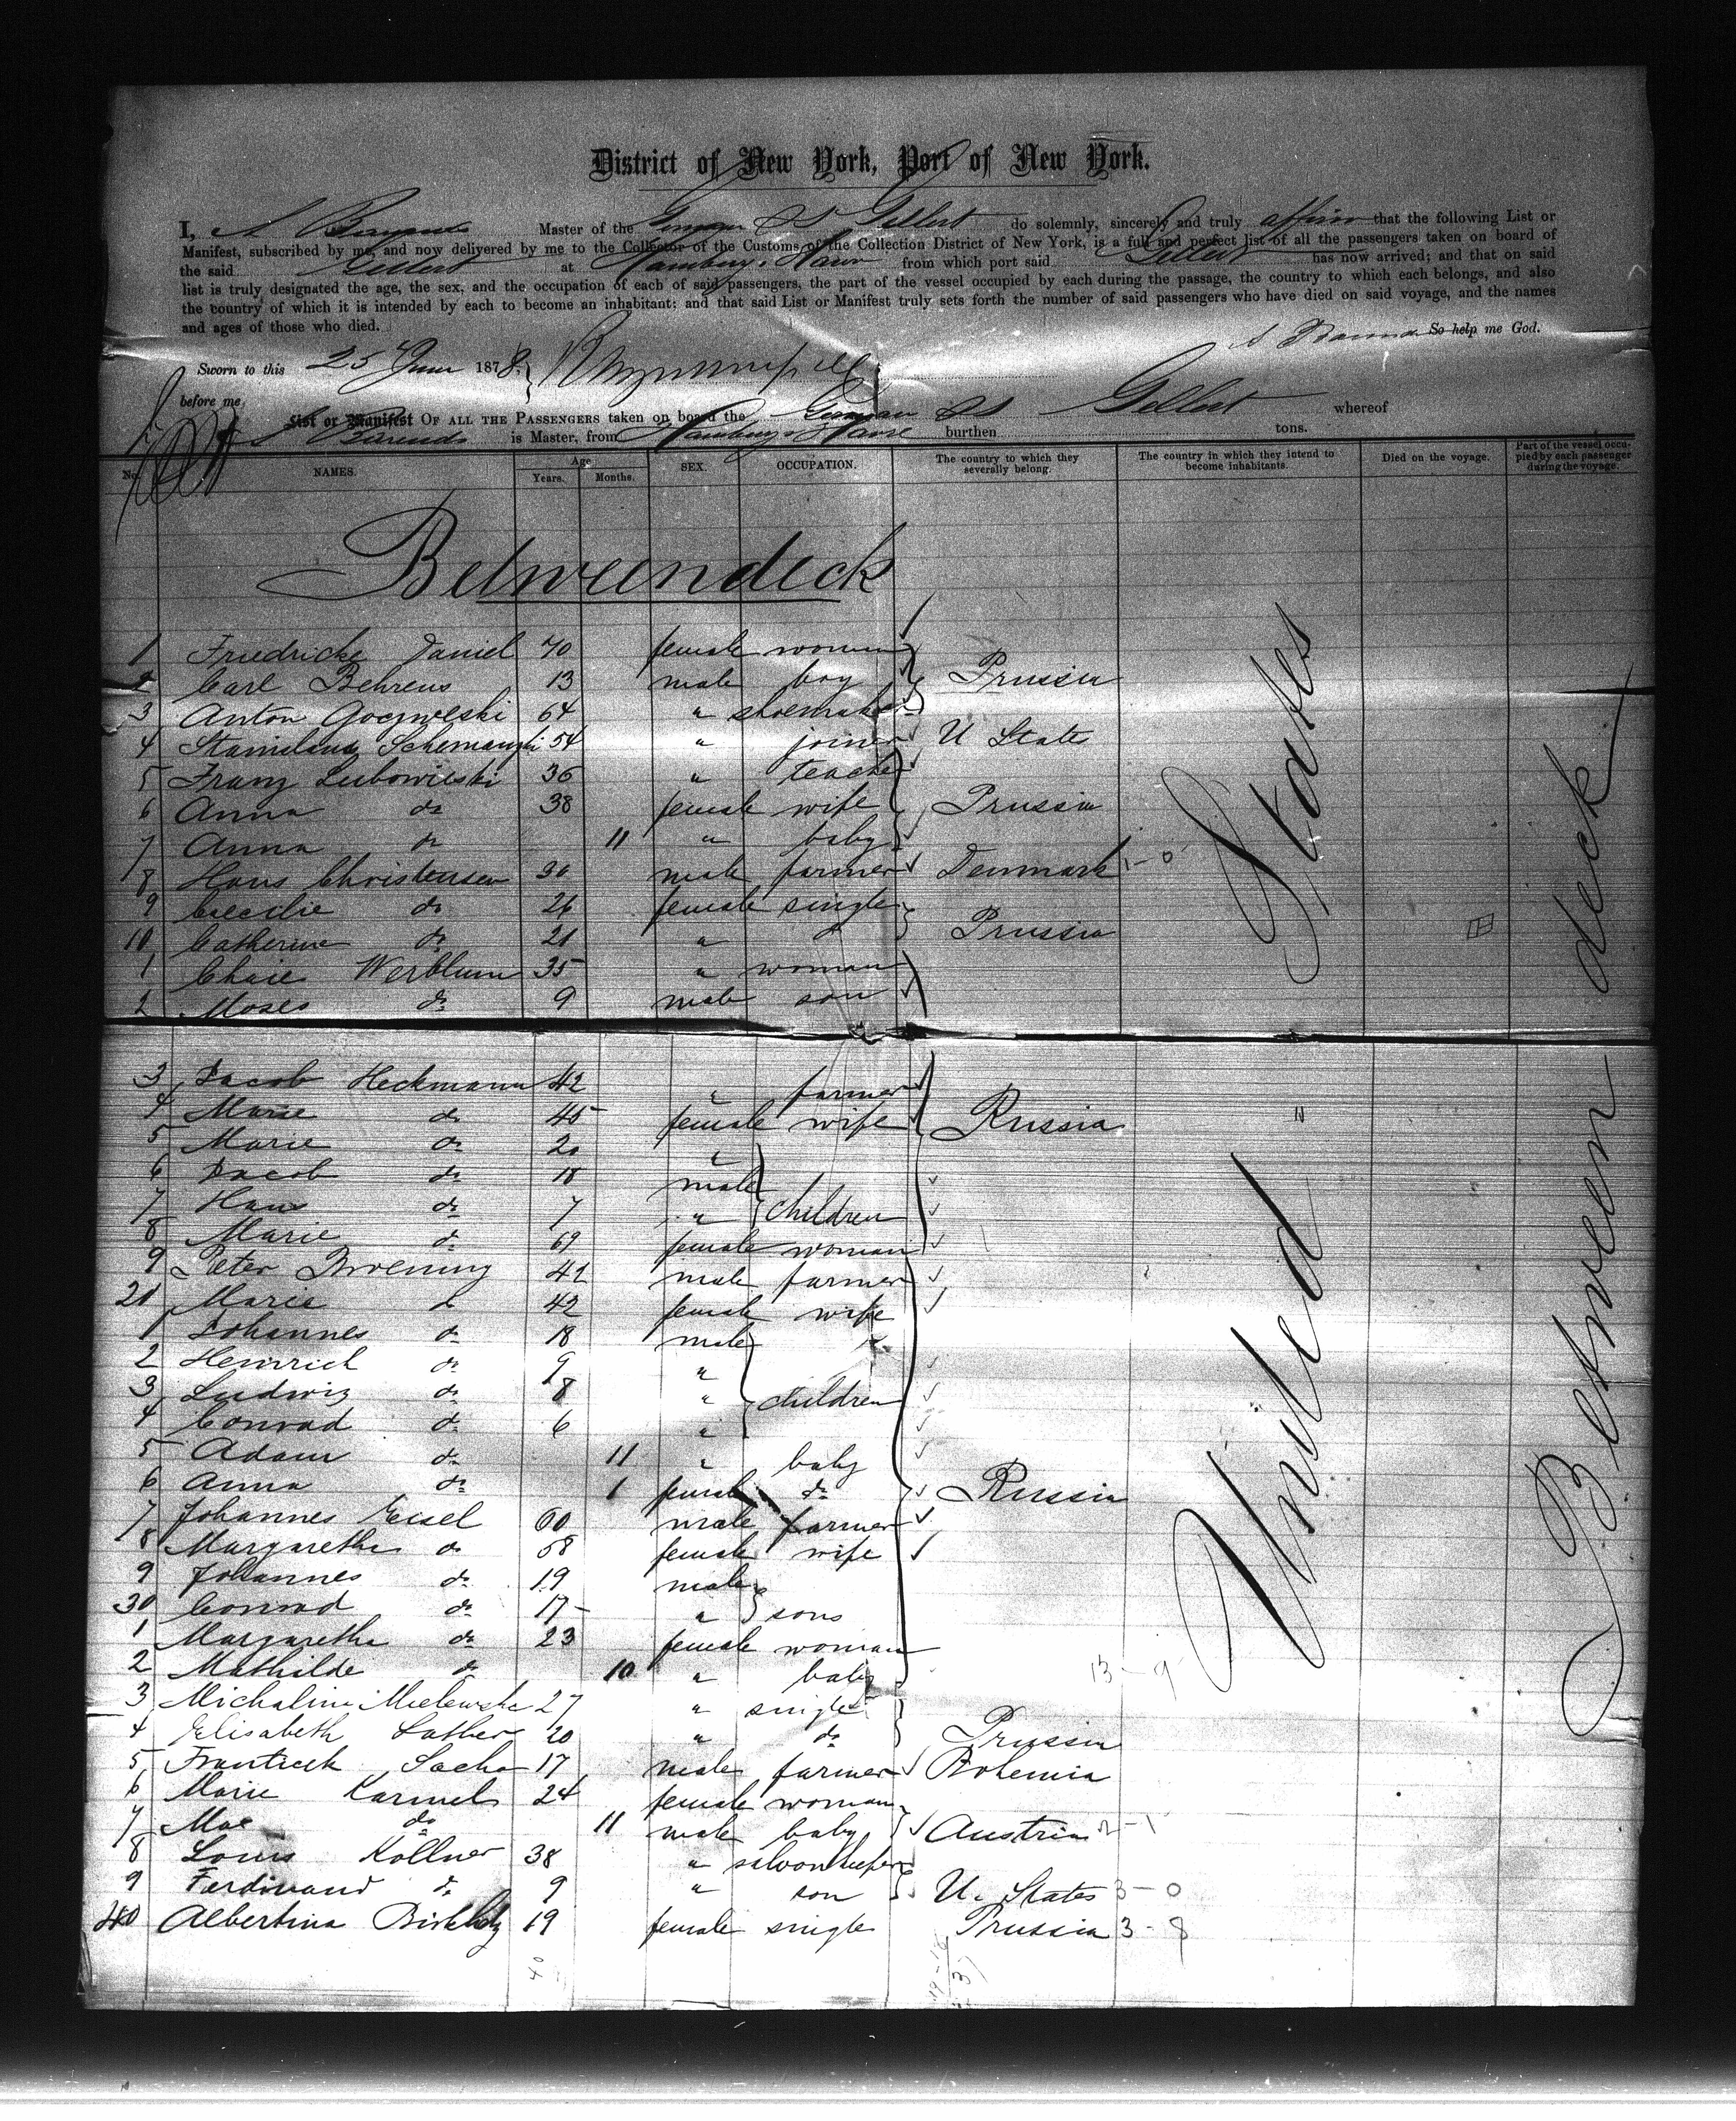 District of New York, Port of New York.
I, A Barends Master of the German SS Gellert do solemnly, sincerely and truly affirm that the following List or
Manifest, subscribed by me, and now delivered by me to the Collector of the Customs of the Collection District of New York, is a full and perfect list of all the passengers taken on board of
the said Gellert at Hamburg & Havre from which port said Gellert has now arrived; and that on said
list is truly designated the age, the sex, and the occupation of each of said passengers, the part of the vessel occupied by each during the passage, the country to which each belongs, and also
the country of which it is intended by each to become an inhabitant; and that said List or Manifest truly sets forth the number of said passengers who have died on said voyage, and the names
and ages of those who died.
A Barends So help me God.
Sworn to this 25 June 1878
before me,
List or Manifest OF ALL THE PASSENGERS taken on board the German SS Gellert whereof
A Barends is Master, from Hamburg & Havre burthen tons.
No. NAMES. Age Years. Months. SEX. OCCUPATION. The country to which they severally belong. The country in which they intend to become inhabitants. Died on the voyage. Part of the vessel occupied by each passenger during the voyage.
Betweendeck
1 Friedricke Daniel 70 female woman
2 Carl Behrens 13 male boy Prussia
3 Anton 64 " shoemaker
4 54 " joiner U State
5 Franz Lubowieski 36 " teacher
6 Anna do 38 female wife Prussia
7 Anna do 11 " baby
8 Hans Christensen 30 male farmer Denmark 1-0
9 Caecilie do 26 female single
10 Catherine do 21 " Prussia
1 Chaie Werblum 35 " woman
2 Moses do 9 male son
3 Jacob Heckmann 42 " farmer
4 Marie do 45 female wife Russia
5 Marie do 20 "
6 Jacob do 18 male
7 Hans do 7 " children
8 Marie do 69 female woman
9 Peter 42 male farmer
20 Marie do 42 female wife
1 Johannes do 18 male
2 Heinrich do 9 "
3 Ludwig do 8 " children
4 Conrad do 6 "
5 Adam do 11 " baby
6 Anna do 1 female do Russia
7 Johannes Eisel 60 male farmer
8 Margarethe do 58 female wife
9 Johannes do 19 male
30 Conrad do 17 " sons
1 Margaretha do 23 female woman
2 Mathilde do 10 " baby 13-9
3 Michalina Mielewska 27 " single
4 Elisabeth Luther 20 " do Prussia
5 Sacha 17 male farmer Bohemia
6 Marie Karmels 24 female woman
7 do 11 male baby Austria 2-1
8 Louis Kollner 38 " saloonkeeper
9 Ferdinand do 9 " son U. States 3-0
40 Albertina 19 female single Prussia 3-8
40
United States
Between deck